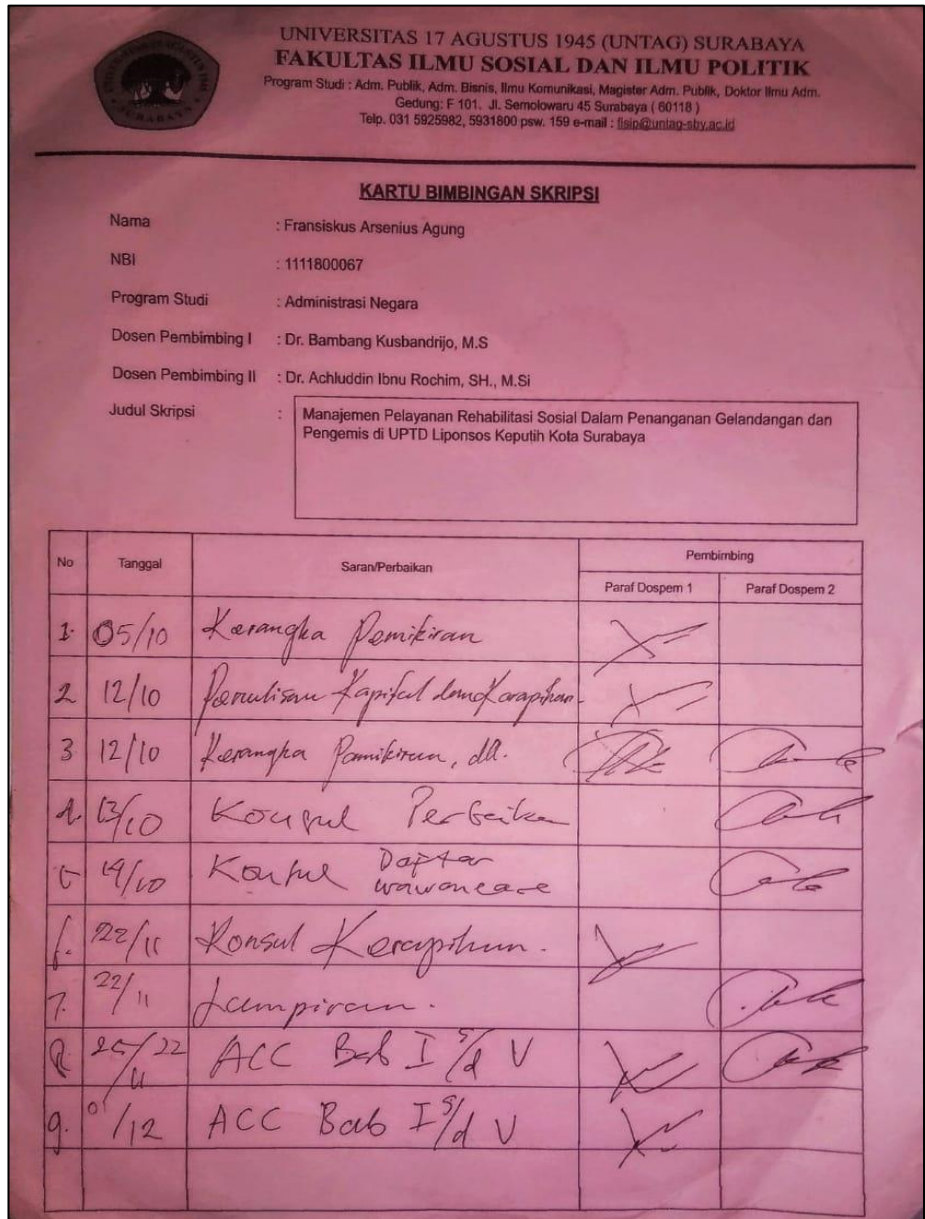 UNIVERSITAS 17 AGUSTUS 1945 (UNTAG) SURABAYA
FAKULTAS ILMU SOSIAL DAN ILMU POLITIK
Program Studi : Adm. Publik, Adm. Bisnis, Ilmu Komunikasi, Magister Adm. Publik, Doktor Ilmu Adm.
Gedung: F 101. Jl. Semolowaru 45 Surabaya ( 60118 )
Telp. 031 5925982, 5931800 psw. 159 e-mail : fisip@untag-sby.ac.id
KARTU BIMBINGAN SKRIPSI
Nama : Fransiskus Arsenius Agung
NBI : 1111800067
Program Studi : Administrasi Negara
Dosen Pembimbing I : Dr. Bambang Kusbandrijo, M.S
Dosen Pembimbing II : Dr. Achluddin Ibnu Rochim, SH., M.Si
Judul Skripsi : Manajemen Pelayanan Rehabilitasi Sosial Dalam Penanganan Gelandangan dan
Pengemis di UPTD Liponsos Keputih Kota Surabaya
No Tanggal Saran/Perbaikan Pembimbing
Paraf Dospem 1 Paraf Dospem 2
1. 05/10 Kerangka Pemikiran
2 12/10 Penulisan Kapital dan Kerapihan
3 12/10 Kerangka Pemikiran, dll.
4. 13/10 Konsul Perbaikan
5 19/10 Konsul Daftar
wawancara
6. 22/11 Konsul Kerapihan.
7. 22/11 Lampiran.
8. 22 ACC Bab I s/d V
9. 01/12 ACC Bab I s/d V